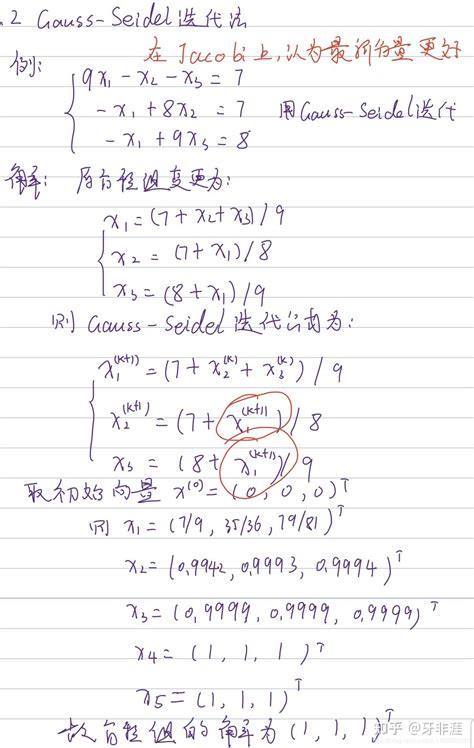 .2 Gauss-Seidel迭代法
在Jacobi上,认为最新分量更好
例:
9x₁ - x₂ - x₃ = 7
-x₁ + 8x₂ = 7 用Gauss-Seidel迭代
-x₁ + 9x₃ = 8
解: 原方程组变更为:
x₁ = (7 + x₂ + x₃) / 9
x₂ = (7 + x₁) / 8
x₃ = (8 + x₁) / 9
则 Gauss-Seidel迭代公式为:
x₁⁽ᵏ⁺¹⁾ = (7 + x₂⁽ᵏ⁾ + x₃⁽ᵏ⁾) / 9
x₂⁽ᵏ⁺¹⁾ = (7 + x₁⁽ᵏ⁺¹⁾) / 8
x₃ = (8 + x₁⁽ᵏ⁺¹⁾) / 9
取初始向量 x⁽⁰⁾ = (0, 0, 0)ᵀ
则 x₁ = (7/9, 35/36, 79/81)ᵀ
x₂ = (0.9942, 0.9993, 0.9994)ᵀ
x₃ = (0.9999, 0.9999, 0.9999)ᵀ
x₄ = (1, 1, 1)ᵀ
x₅ = (1, 1, 1)ᵀ
故方程组的解为 (1, 1, 1)ᵀ
知乎 @牙非涯